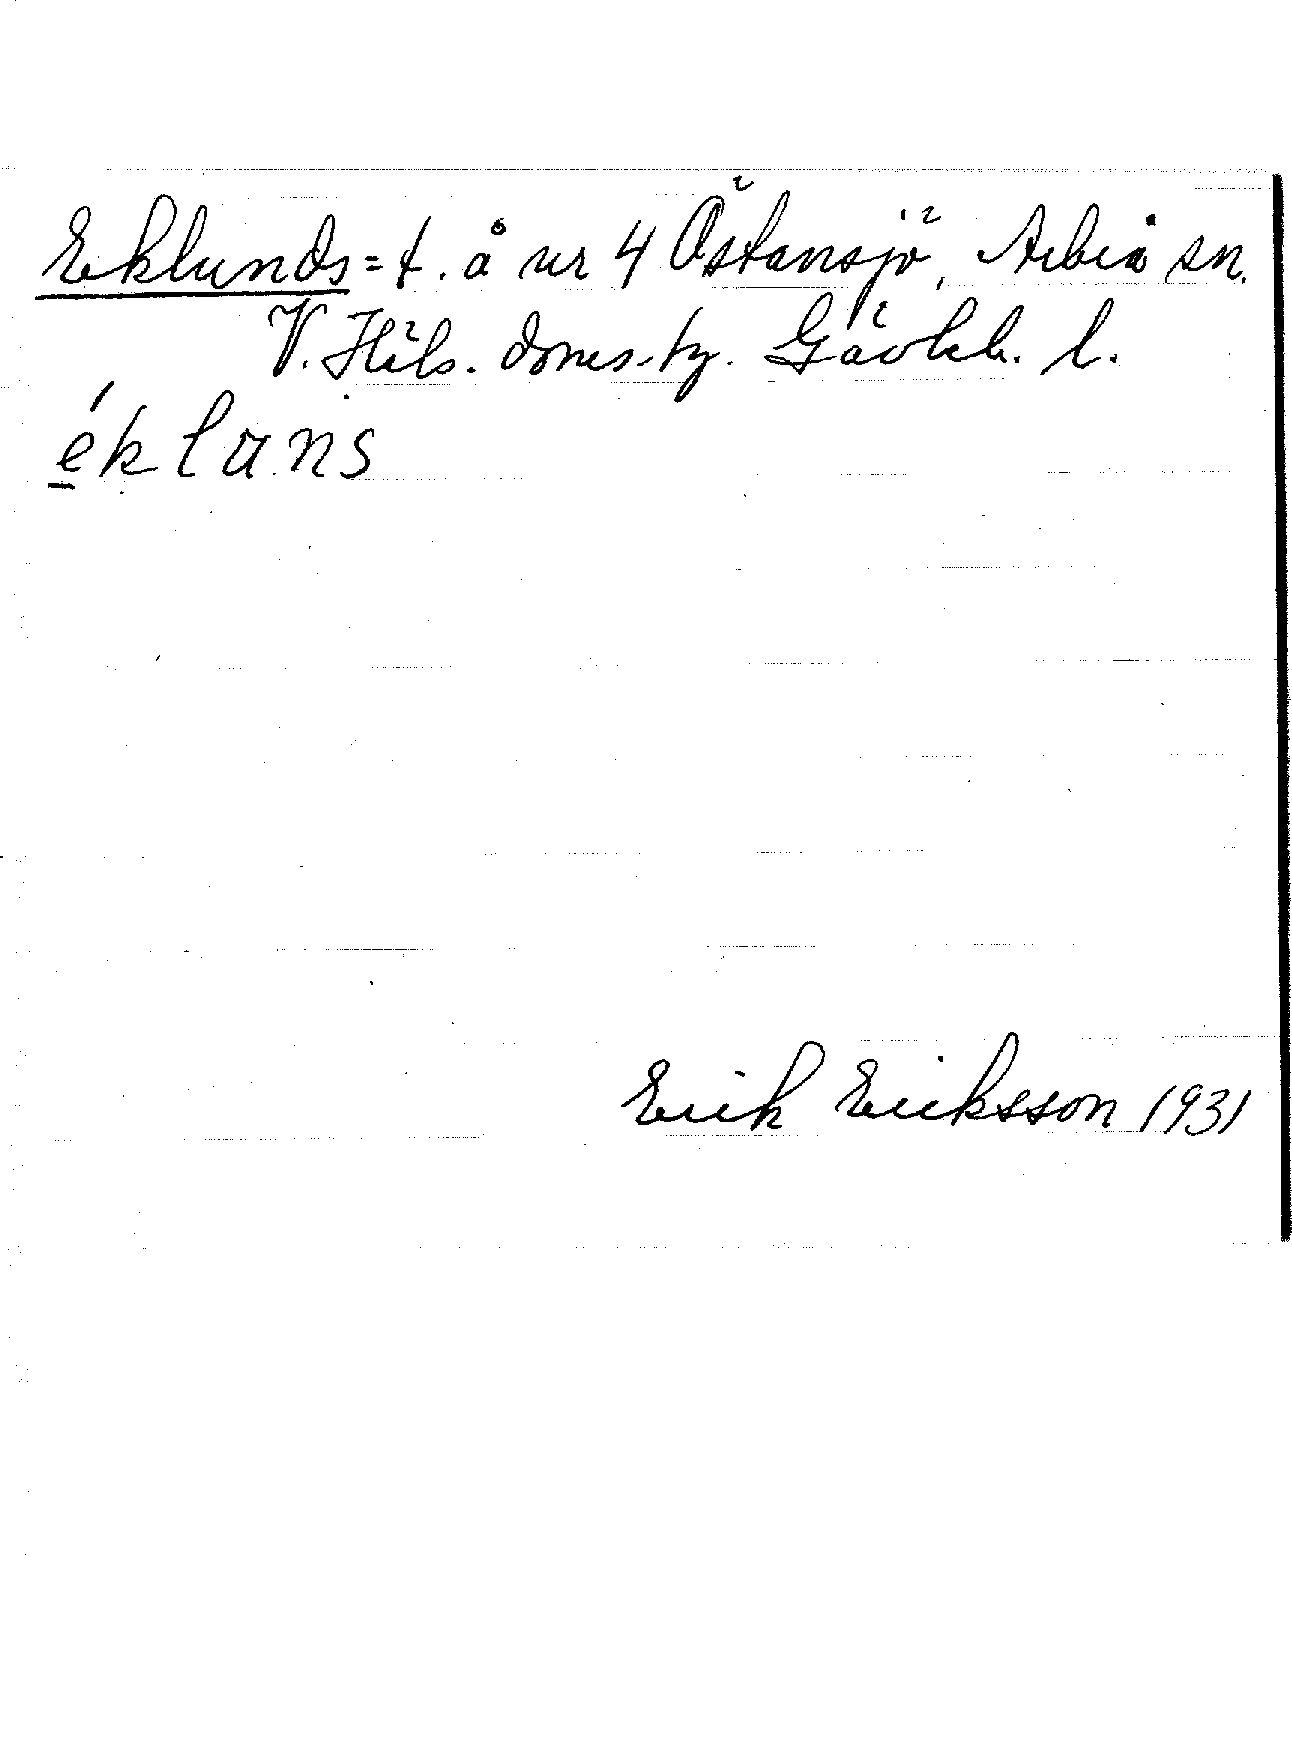 Eklunds = t. å nr 4 Östansjö, Arbrå sn.
V. Häls. doms.-tg. Gävleb. l.
éklans
Erik Eriksson 1931